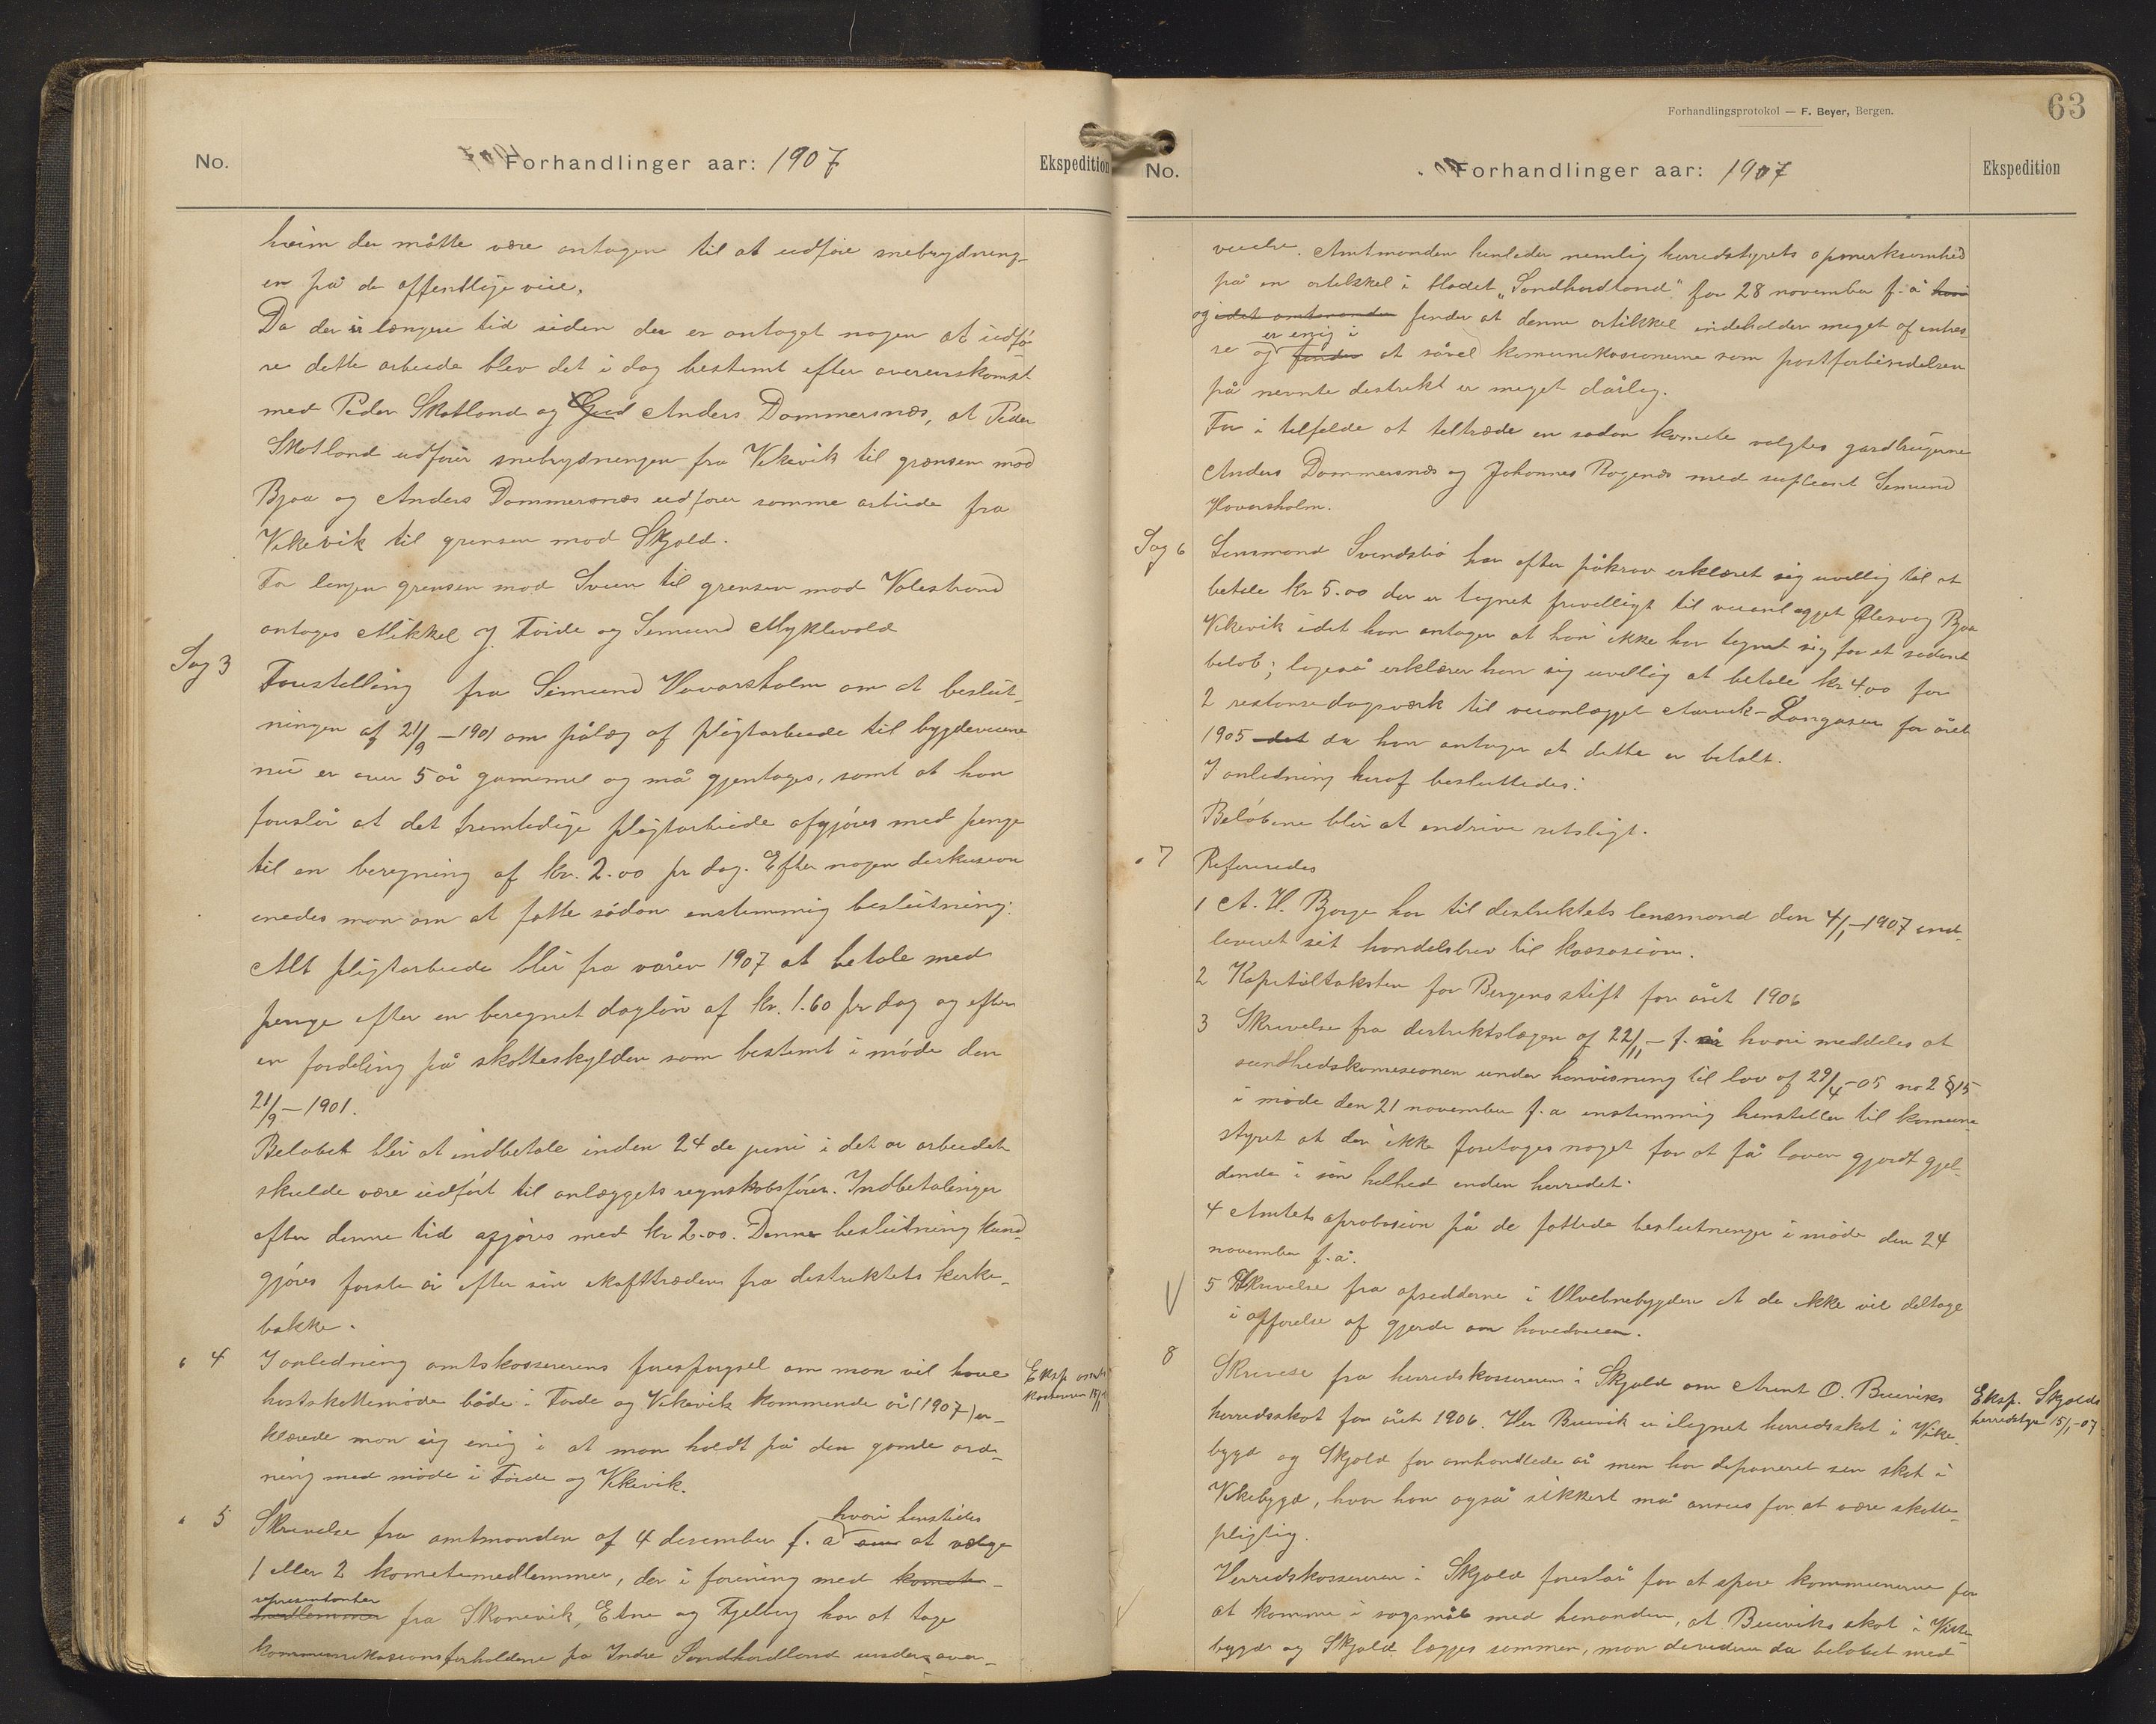 No.
Forhandlinger aar: 1907
Ekspedition
hvim der måtte være antagen til at udføre snebrydning-
en på de offentlige veie.
Da der er længere tid siden der er antaget nogen at udfø-
re dette arbeide blev det i dag bestemt efter overenskomst
med Peder Skatland og Anders Dommersnæs, at Peder
Skatland udfører snebrydningen fra Vikevik til grænsen mod
Bjoa og Anders Dommersnæs udfører samme arbeide fra
Vikevik til grensen mod Skjold.
For linjen grensen mod Sveen til grensen mod Valestrand
antages Mikkel J. Førde og Semund Myklevold
Sag 3
Forestilling fra Semund Hovarsholm om at beslut-
ningen af 21/9 – 1901 om pålæg af pligtarbeide til bygdeveiene
nu er over 5 år gammel og må gjentages, samt at han
foreslår at det fremtidige pligtarbeide afgjøres med penge
til en beregning af kr. 2.00 pr dag. Efter nogen diskusion
enedes man om at fatte sådan enstemmig beslutning:
Alt pligtarbeide blir fra våren 1907 at betale med
penge efter en beregnet dagløn af kr. 1.60 pr dag og efter
en fordeling på skatteskylden som bestemt i møde den
21/9 – 1901.
Beløbet blir at indbetale inden 24 de juni i det år arbeidet
skulde være udført til anlæggets regnskabsfører. Indbetalinger
efter denne tid afgjøres med kr 2.00. Denne beslutning kund-
gjøres første år efter sin ikafttræden fra distriktets kirke-
bakke.
" 4
I anledning amtskassererens forespørgsel om man vil have
høstskattemøde både i Førde og Vikevik kommende år (1907) er-
klærede man sig enig i at man holdt på den gamle ord-
ning med møde i Førde og Vikevik.
Eksp. amts
kasseren 15/1
" 5
hvori henstilles
Skrivelse fra amtmanden af 4 desember f. å om at vælge
1 eller 2 kometemedlemmer, der i forening med komete-
representanter
medlemmer fra Skånevik, Etne og Fjelberg har at tage
kommunikasionsforholdene på Indre Søndhordland under over-
Forhandlingsprotokol — F. Beyer, Bergen.
63
No.
Forhandlinger aar: 1907
Ekspedition
veielse. Amtmanden henleder nemlig herredstyrets opmerksomhed
på en artikkel i bladet "Søndhordland" for 28 november f. å hvori
og idet amtmanden finder at denne artikkel indeholder meget af intres-
er enig i
se og finder at såvel komunikasionerne som postforbindelsen
på nevnte distrikt er meget dårlig.
For i tilfelde at tiltræde en sådan komite valgtes gardbrugerne
Anders Dommersnæs og Johannes Røgenæs med supleant Semund
Hovarsholm.
Sag 6
Lensmand Svendsbø har efter påkrav erklæret sig uvillig til at
betale kr 5.00 der er tegnet frivilligt til veianlægget Ølesvåg Bjoa
Vikevik idet han antager at han ikke har tegnet sig for et sådant
beløb; ligeså erklærer han sig uvillig at betale kr 4.00 for
2 restansedagsværk til veianlægget Aarvik–Langåsen for året
1905 det da han antager at dette er betalt.
I anledning heraf besluttedes:
Beløbene blir at inddrive retsligt.
" 7
Refereredes
1 A. H. Bjorge har til distriktets lensmand den 4/1–1907 ind-
leveret sit handelsbrev til kassasion.
2 Kapitelstaksten for Bergens stift for året 1906
3 Skrivelse fra distriktslægen af 22/11 – f. år hvori meddeles at
sundhedskomesionen under henvisning til lov af 29/4–05 no 2 § 15
i møde den 21 november f. a enstemmig henstiller til komune-
styret at der ikke foretages noget for at få loven gjordt gjel-
dende i sin helhed inden herredet.
4 Amtets aprobasion på de fattede beslutninger i møde den 24
november f. å.
5 Skrivelse fra opsidderne i Ølvebnebygden at de ikke vil deltage
i opførelse af gjerde om hovedveien.
8
Skrivese fra herredskassereren i Skjold om Arent O. Bueviks
herredsskat for året 1906. Her Buevik er ilignet herredsskat i Vike-
bygd og Skjold for omhandlede år men har deponeret sin skat i
Vikebygd, hvor han også sikkert må ansees for at være skatte-
pligtig.
Eksp. Skjolds
herredstyre 15/1–07
Herredskassereren i Skjold foreslår for at spare kommunerne for
at komme i sagsmål med hinanden, at Bueviks skat i Vike-
bygd og Skjold lægges sammen, man deviderer da beløbet med